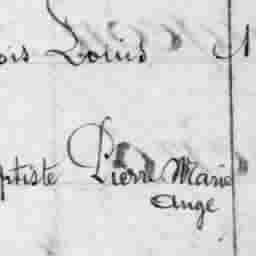 ois Louis
ptiste Pierre Marie
Ange